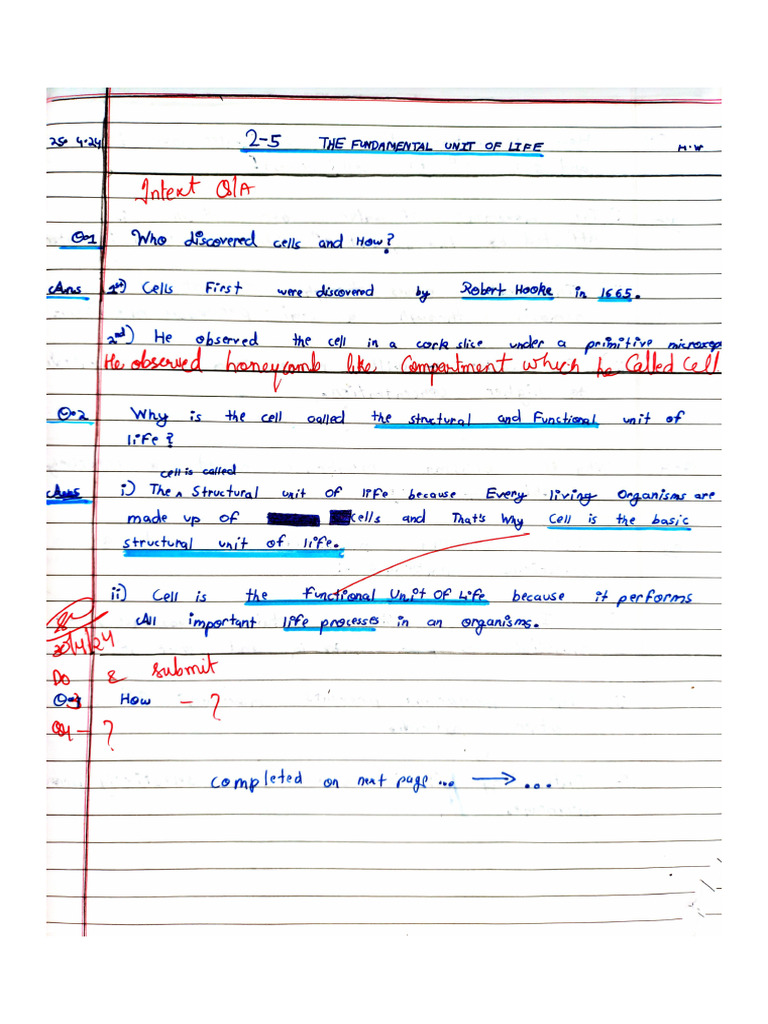 25. 4.24 2-5 THE FUNDAMENTAL UNIT OF LIFE H.W
Intext Q/A
Q.1 Who discovered cells and How?
Ans 1st) Cells First were discovered by Robert Hooke in 1665.
2nd) He observed the cell in a cork slice under a primitive microscop
He observed honeycomb like Compartment which he Called Cell
Q.2 Why is the cell called the structural and Functional unit of
life?
cell is called
Ans i) The ^ Structural unit of life because Every living Organisms are
made up of cells and That's Why Cell is the basic
structural unit of life.
ii) Cell is the Functional Unit Of Life because it performs
All important life processes in an organisms.
30/4/24
Do & submit
Q.3 How - ?
Q4 - ?
completed on next page ... → ...